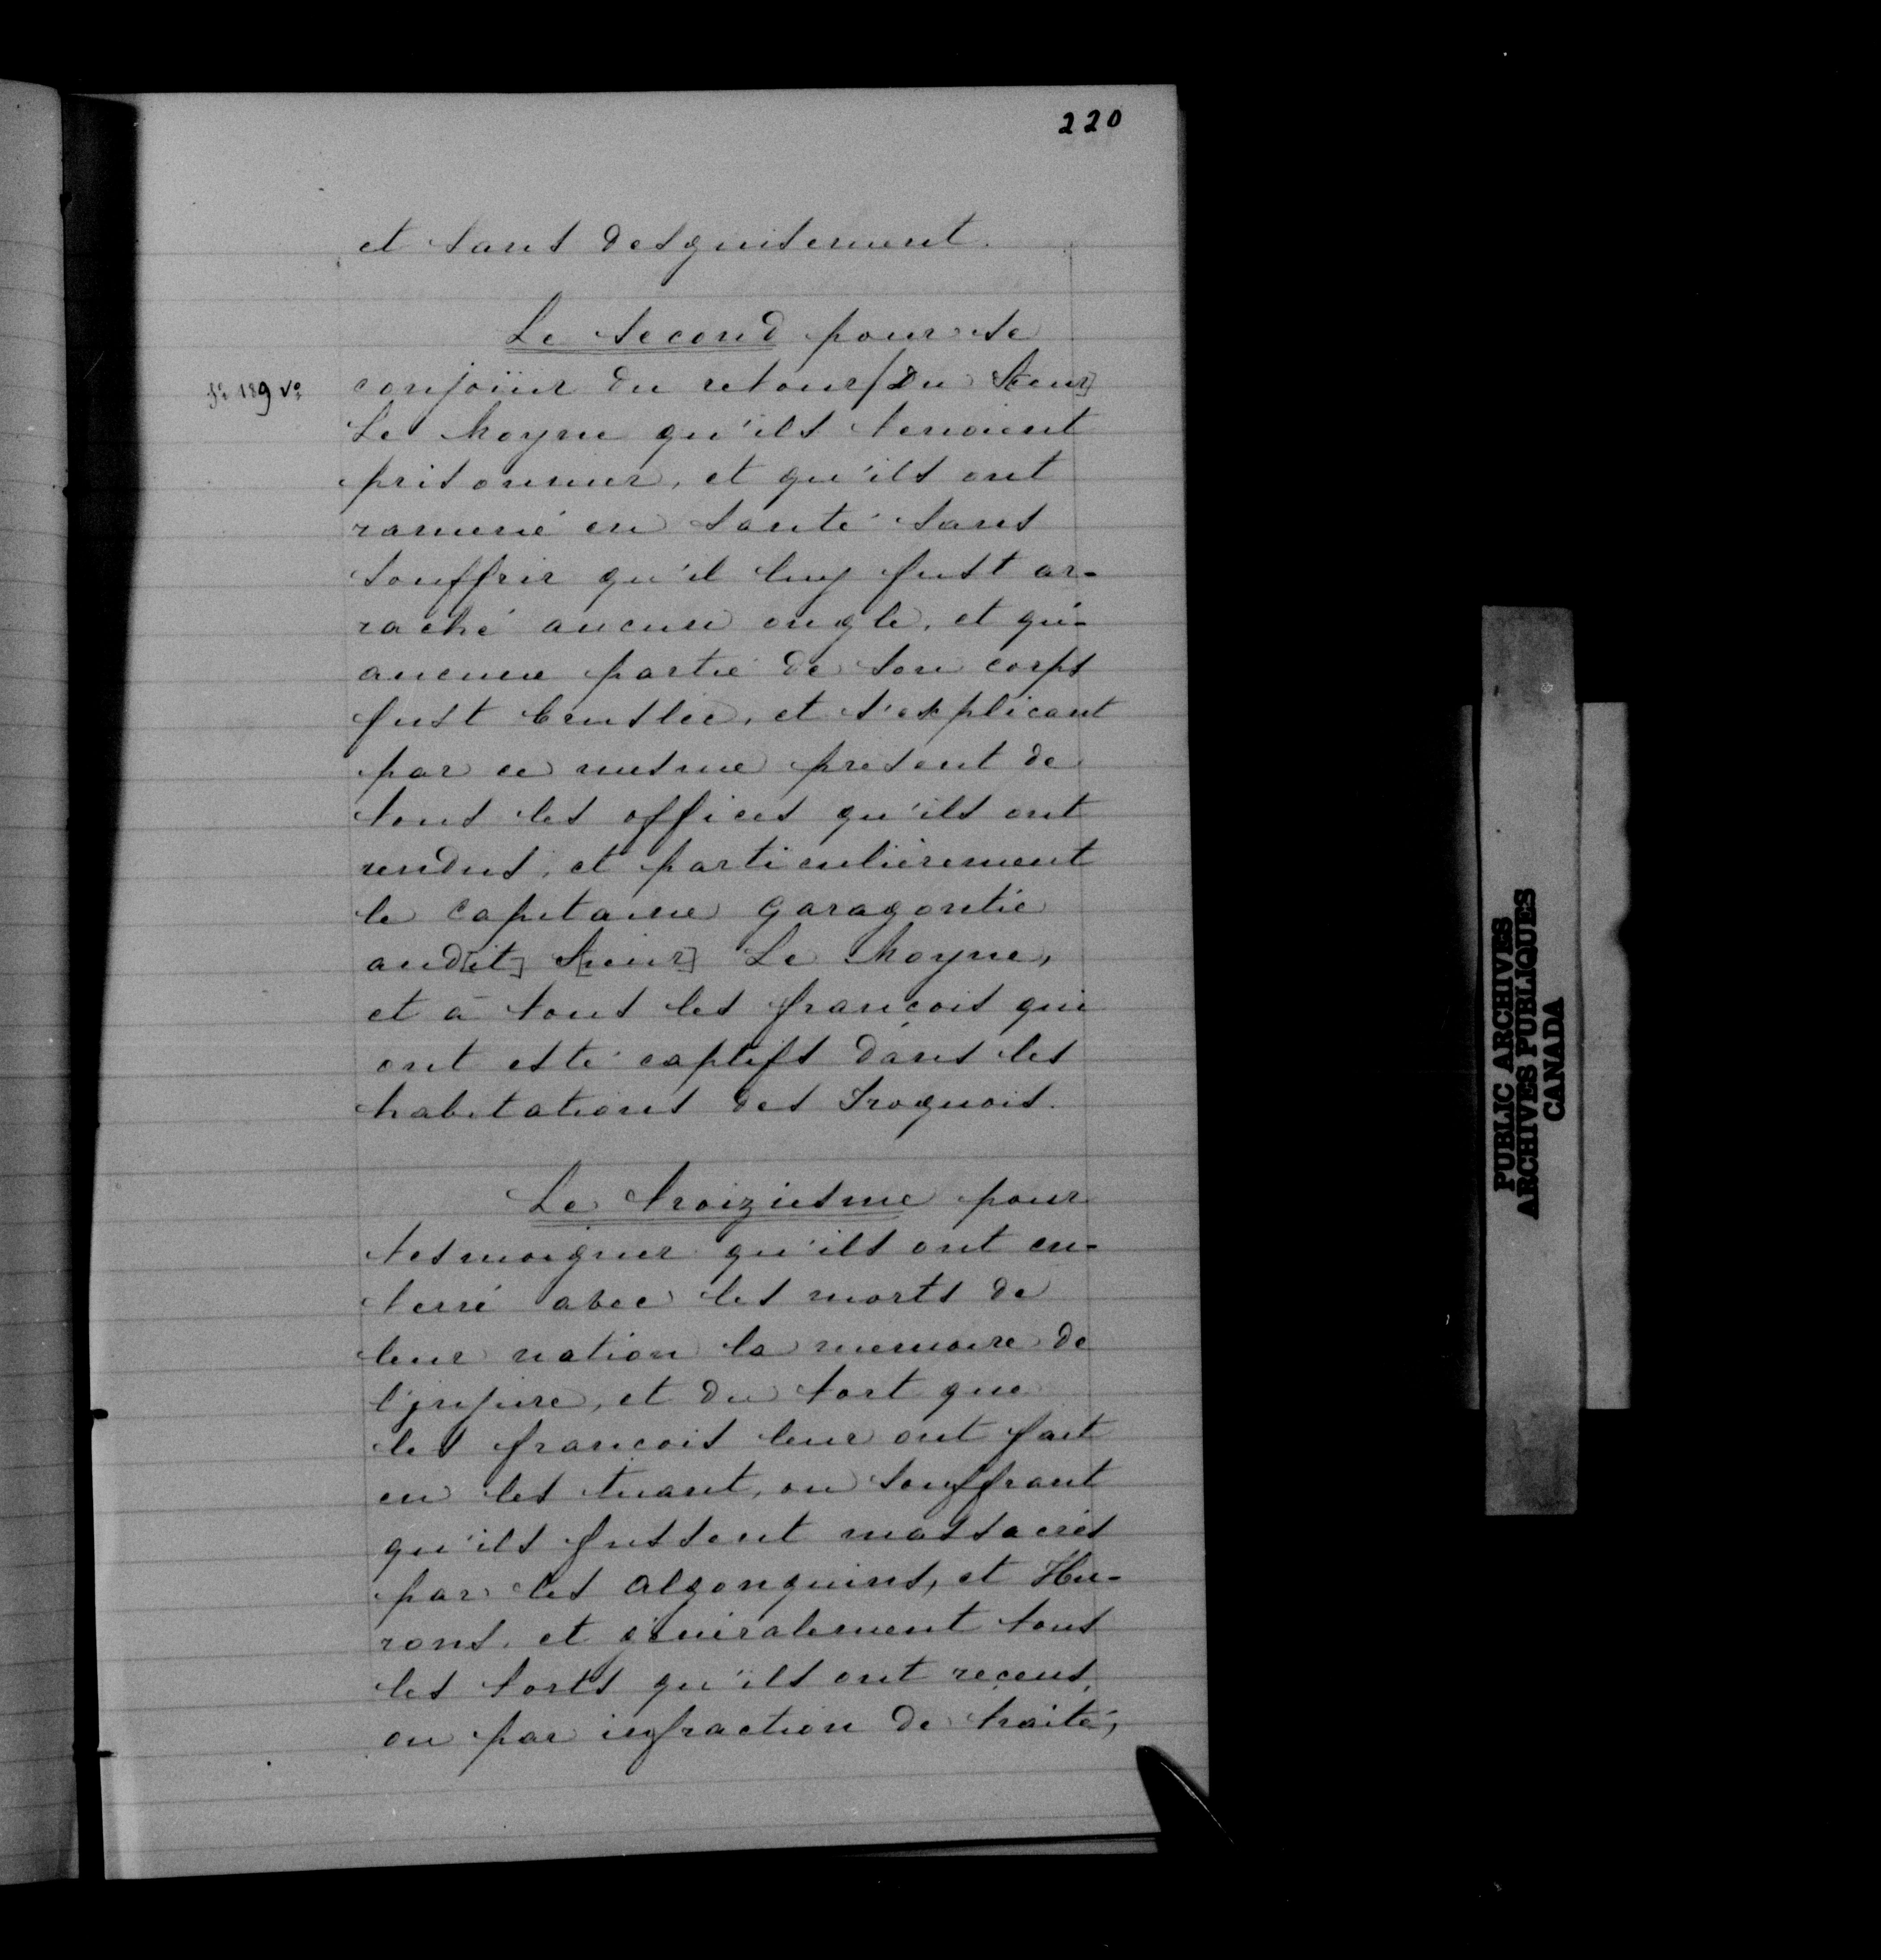 220
et sans desguisement.
Le second pour se
fo. 189 vo.
conjoüir du retour/du S[ieur]
Le Moyne qu'ils tenoient
prisonnier, et qu'ils ont
ramené en santé sans
souffrir qu'il luy fust ar-
raché aucun ongle, et qu'
aucune partie de son corps
fust bruslée, et s'explicant
par ce mesme present de
tous les offices qu'ils ont
rendus, et particulièrement
le Capitaine Garagontié
aud[it] S[ieur] Le Moyne,
et à tous les françois qui
ont esté captifs dans les
habitations des Iroquois.
Le troiziesme pour
tesmoigner qu'ils ont en-
terré avec les morts de
leur nation la memoire de
l'jnjure, et du tort que
les françois leur ont fait
en les tuant, ou souffrant
qu'ils fussent massacrés
par les Algonquins, et Hu-
rons, et généralement tous
les torts qu'ils ont reçeus,
ou par infraction de traité,
PUBLIC ARCHIVES
ARCHIVES PUBLIQUES
CANADA